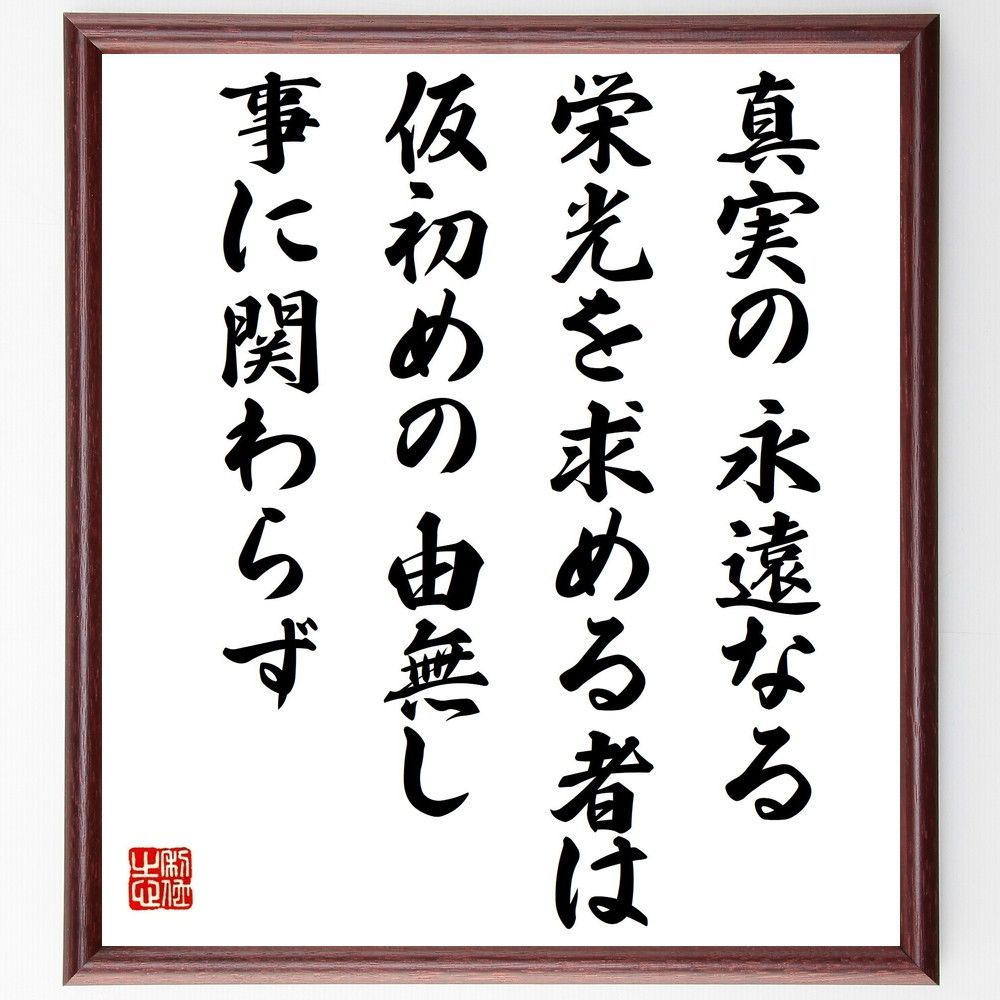 真実の 永遠なる
栄光を求める者は
仮初めの 由無し
事に関わらず